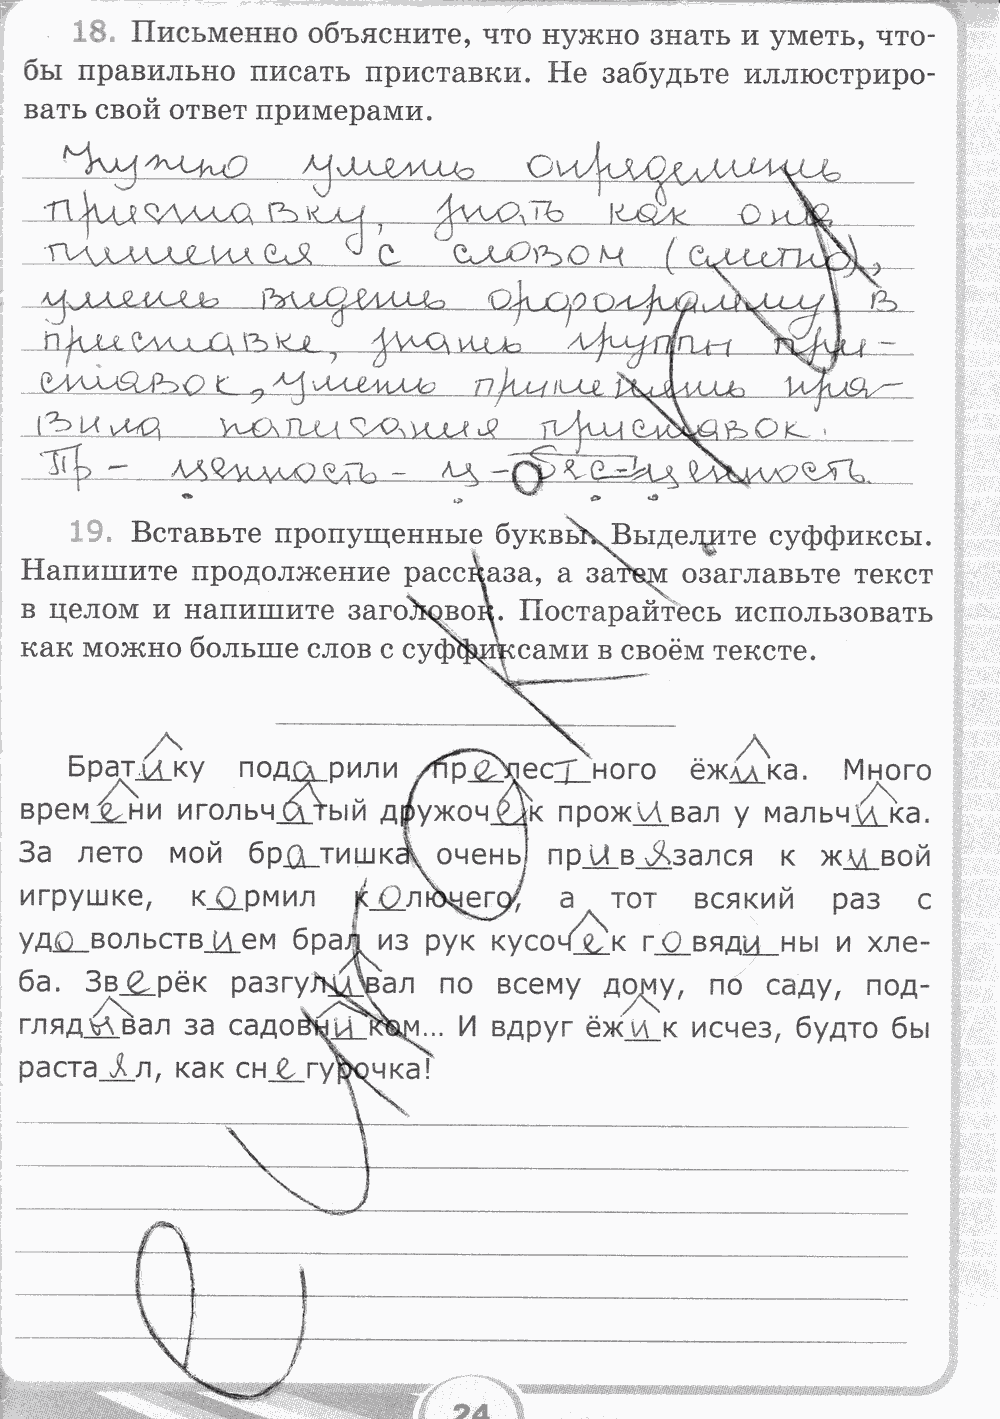 18. Письменно объясните, что нужно знать и уметь, что-
бы правильно писать приставки. Не забудьте иллюстриро-
вать свой ответ примерами.
Нужно уметь определить
приставку, знать как она
пишется с словом (слитно),
уметь видеть орфограмму в
приставке, знать группы при-
ставок, уметь применять пра-
вила написания приставок.
Пр - ценность - ц - бес-ценность.
19. Вставьте пропущенные буквы. Выделите суффиксы.
Напишите продолжение рассказа, а затем озаглавьте текст
в целом и напишите заголовок. Постарайтесь использовать
как можно больше слов с суффиксами в своём тексте.
Братику подарили прелестного ёжика. Много
времени игольчатый дружочек проживал у мальчика.
За лето мой братишка очень привязался к живой
игрушке, кормил колючего, а тот всякий раз с
удовольствием брал из рук кусочек говядины и хле-
ба. Зверёк разгуливал по всему дому, по саду, под-
глядывал за садовником... И вдруг ёжик исчез, будто бы
растаял, как снегурочка!
24